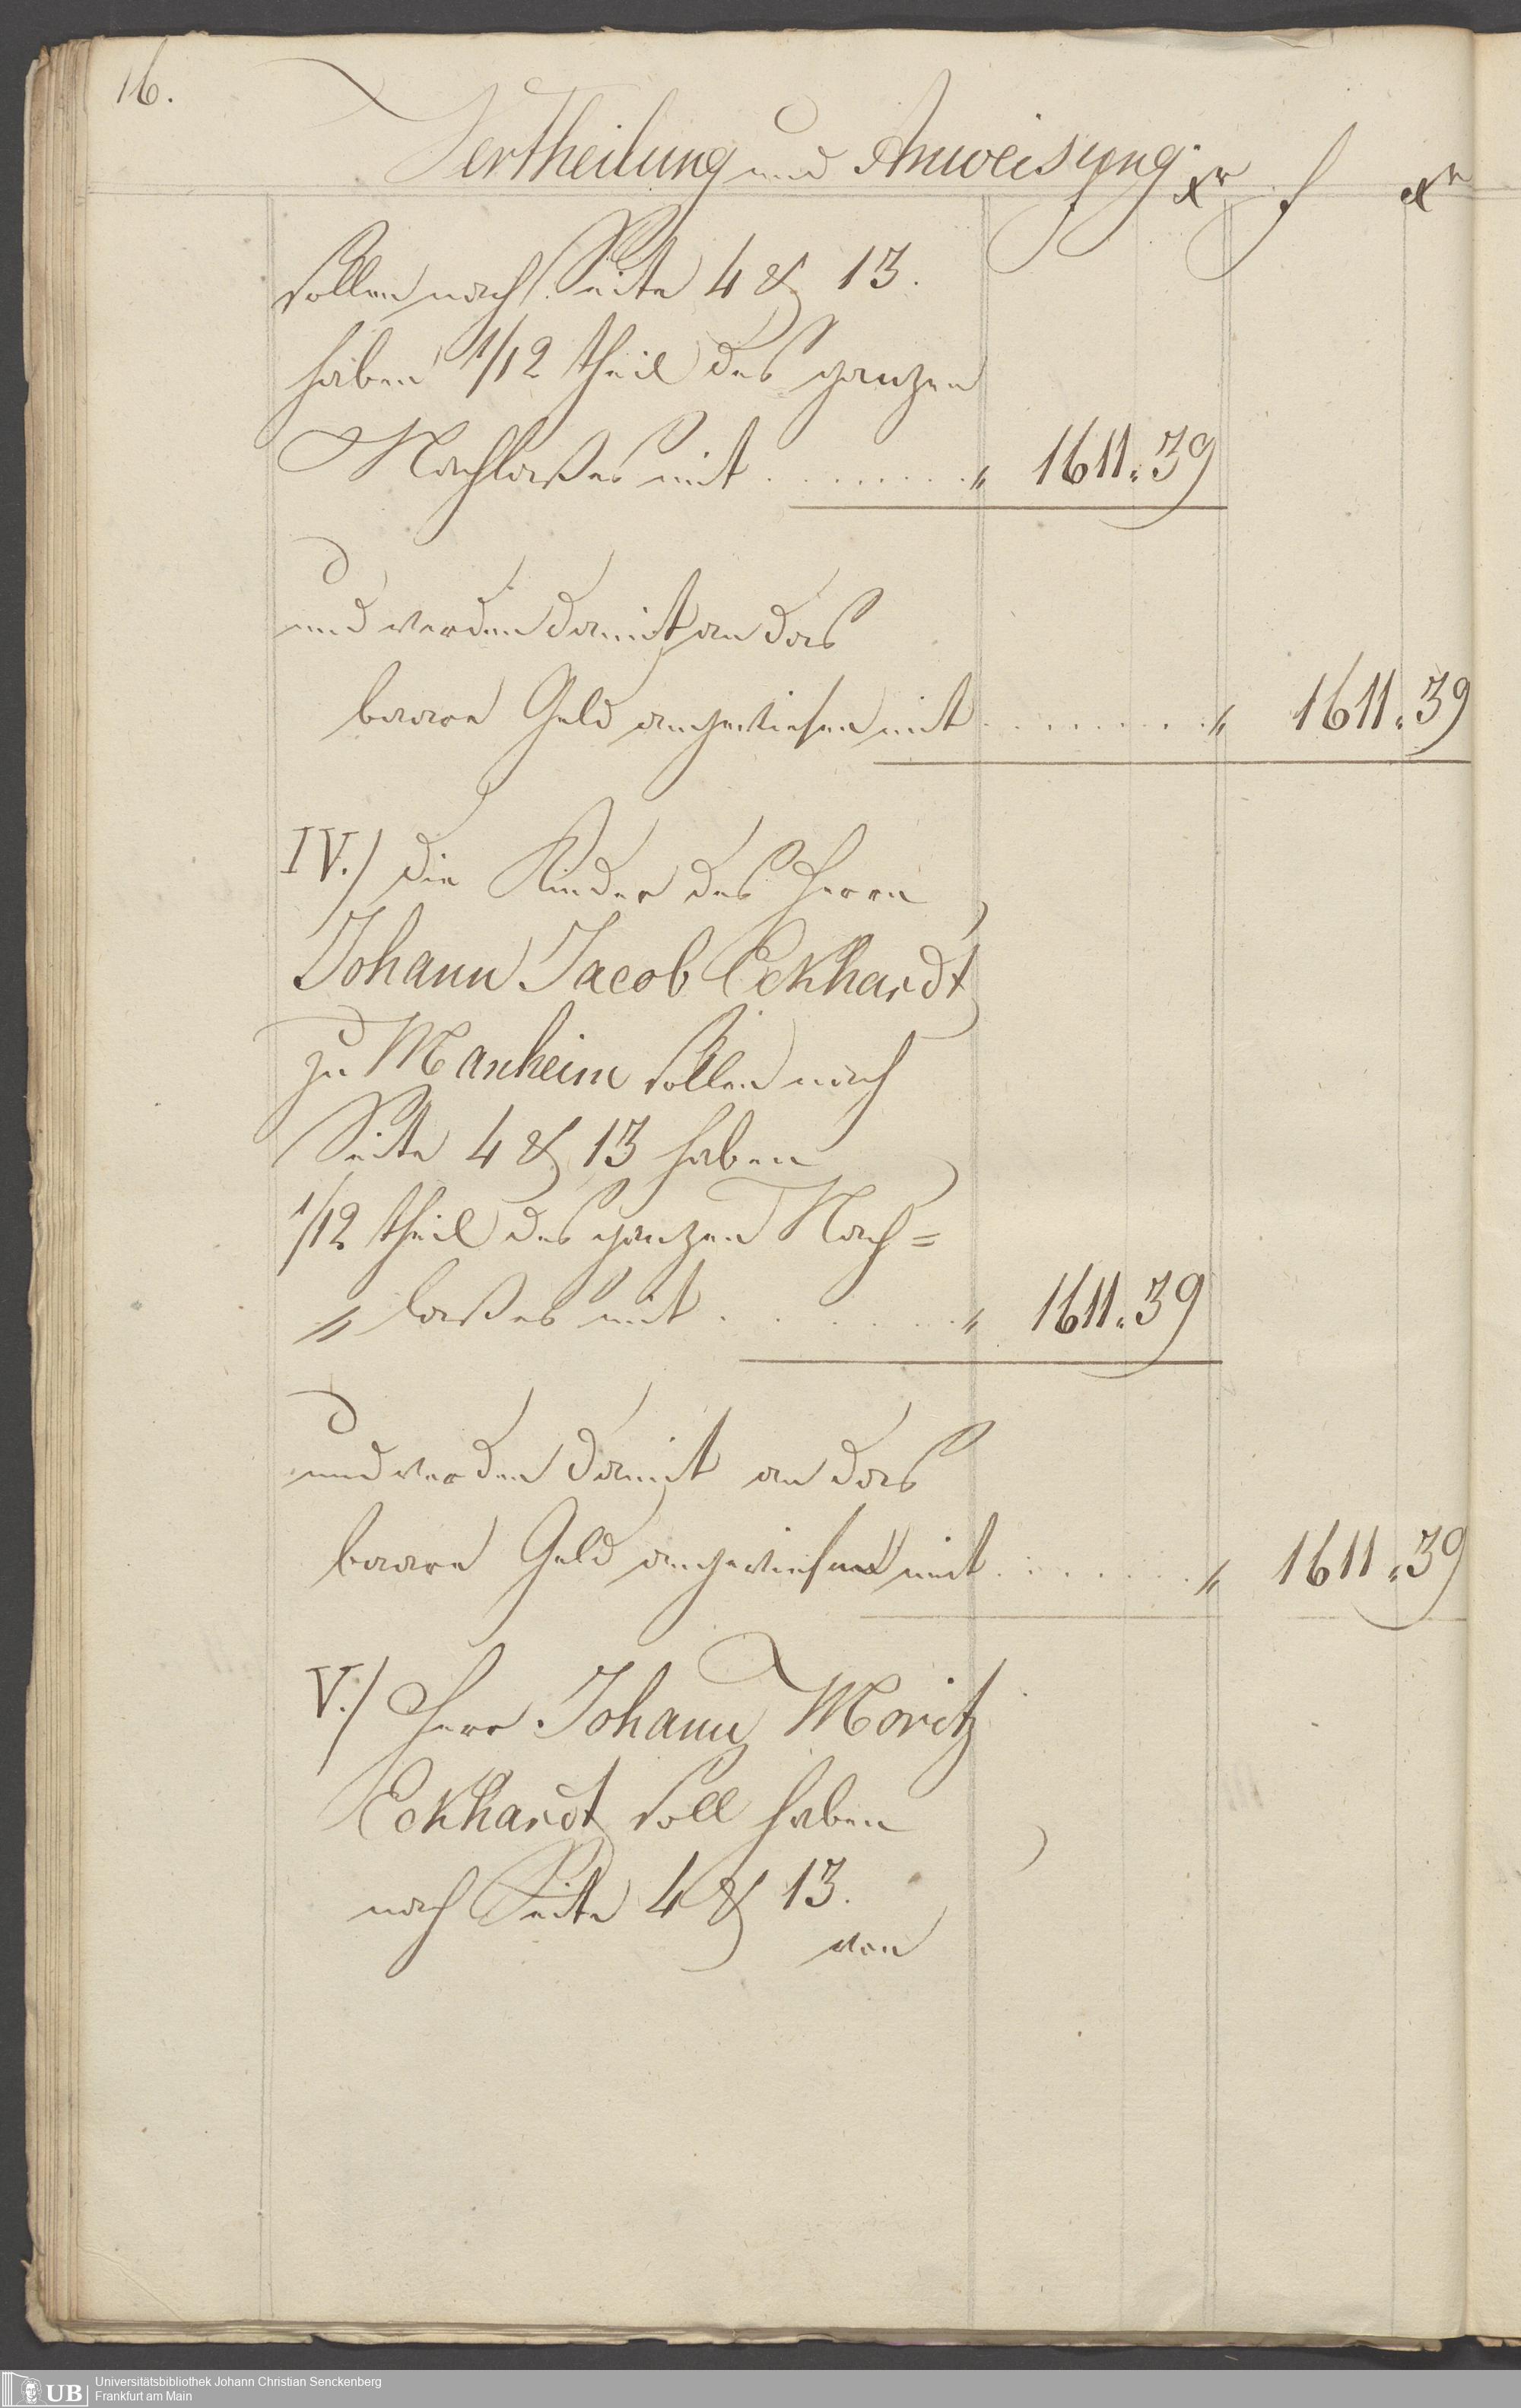 16.
Vertheilung und Anweisung.
f xr f xr
sollen nach Seite 4 & 13.
haben 1/12 theil des ganzen
Nachlaßes mit . . . . . . . . . " 1611. 39
und werden damit an das
baare Geld angewiesen mit . . . . . . . . " 1611. 39
IV.) Die Kinder des Herrn
Johann Jacob Eckhardt
zu Manheim sollen nach
Seite 4 & 13 haben
1/12 theil des ganzen Nach=
" laßes mit . . . . . . . " 1611. 39
und werden damit an das
baare Geld angewiesen mit . . . . . . . " 1611. 39
V.) Herr Johann Moritz
Eckhardt soll haben
nach Seite 4 & 13.
von
UB Universitätsbibliothek Johann Christian Senckenberg
Frankfurt am Main